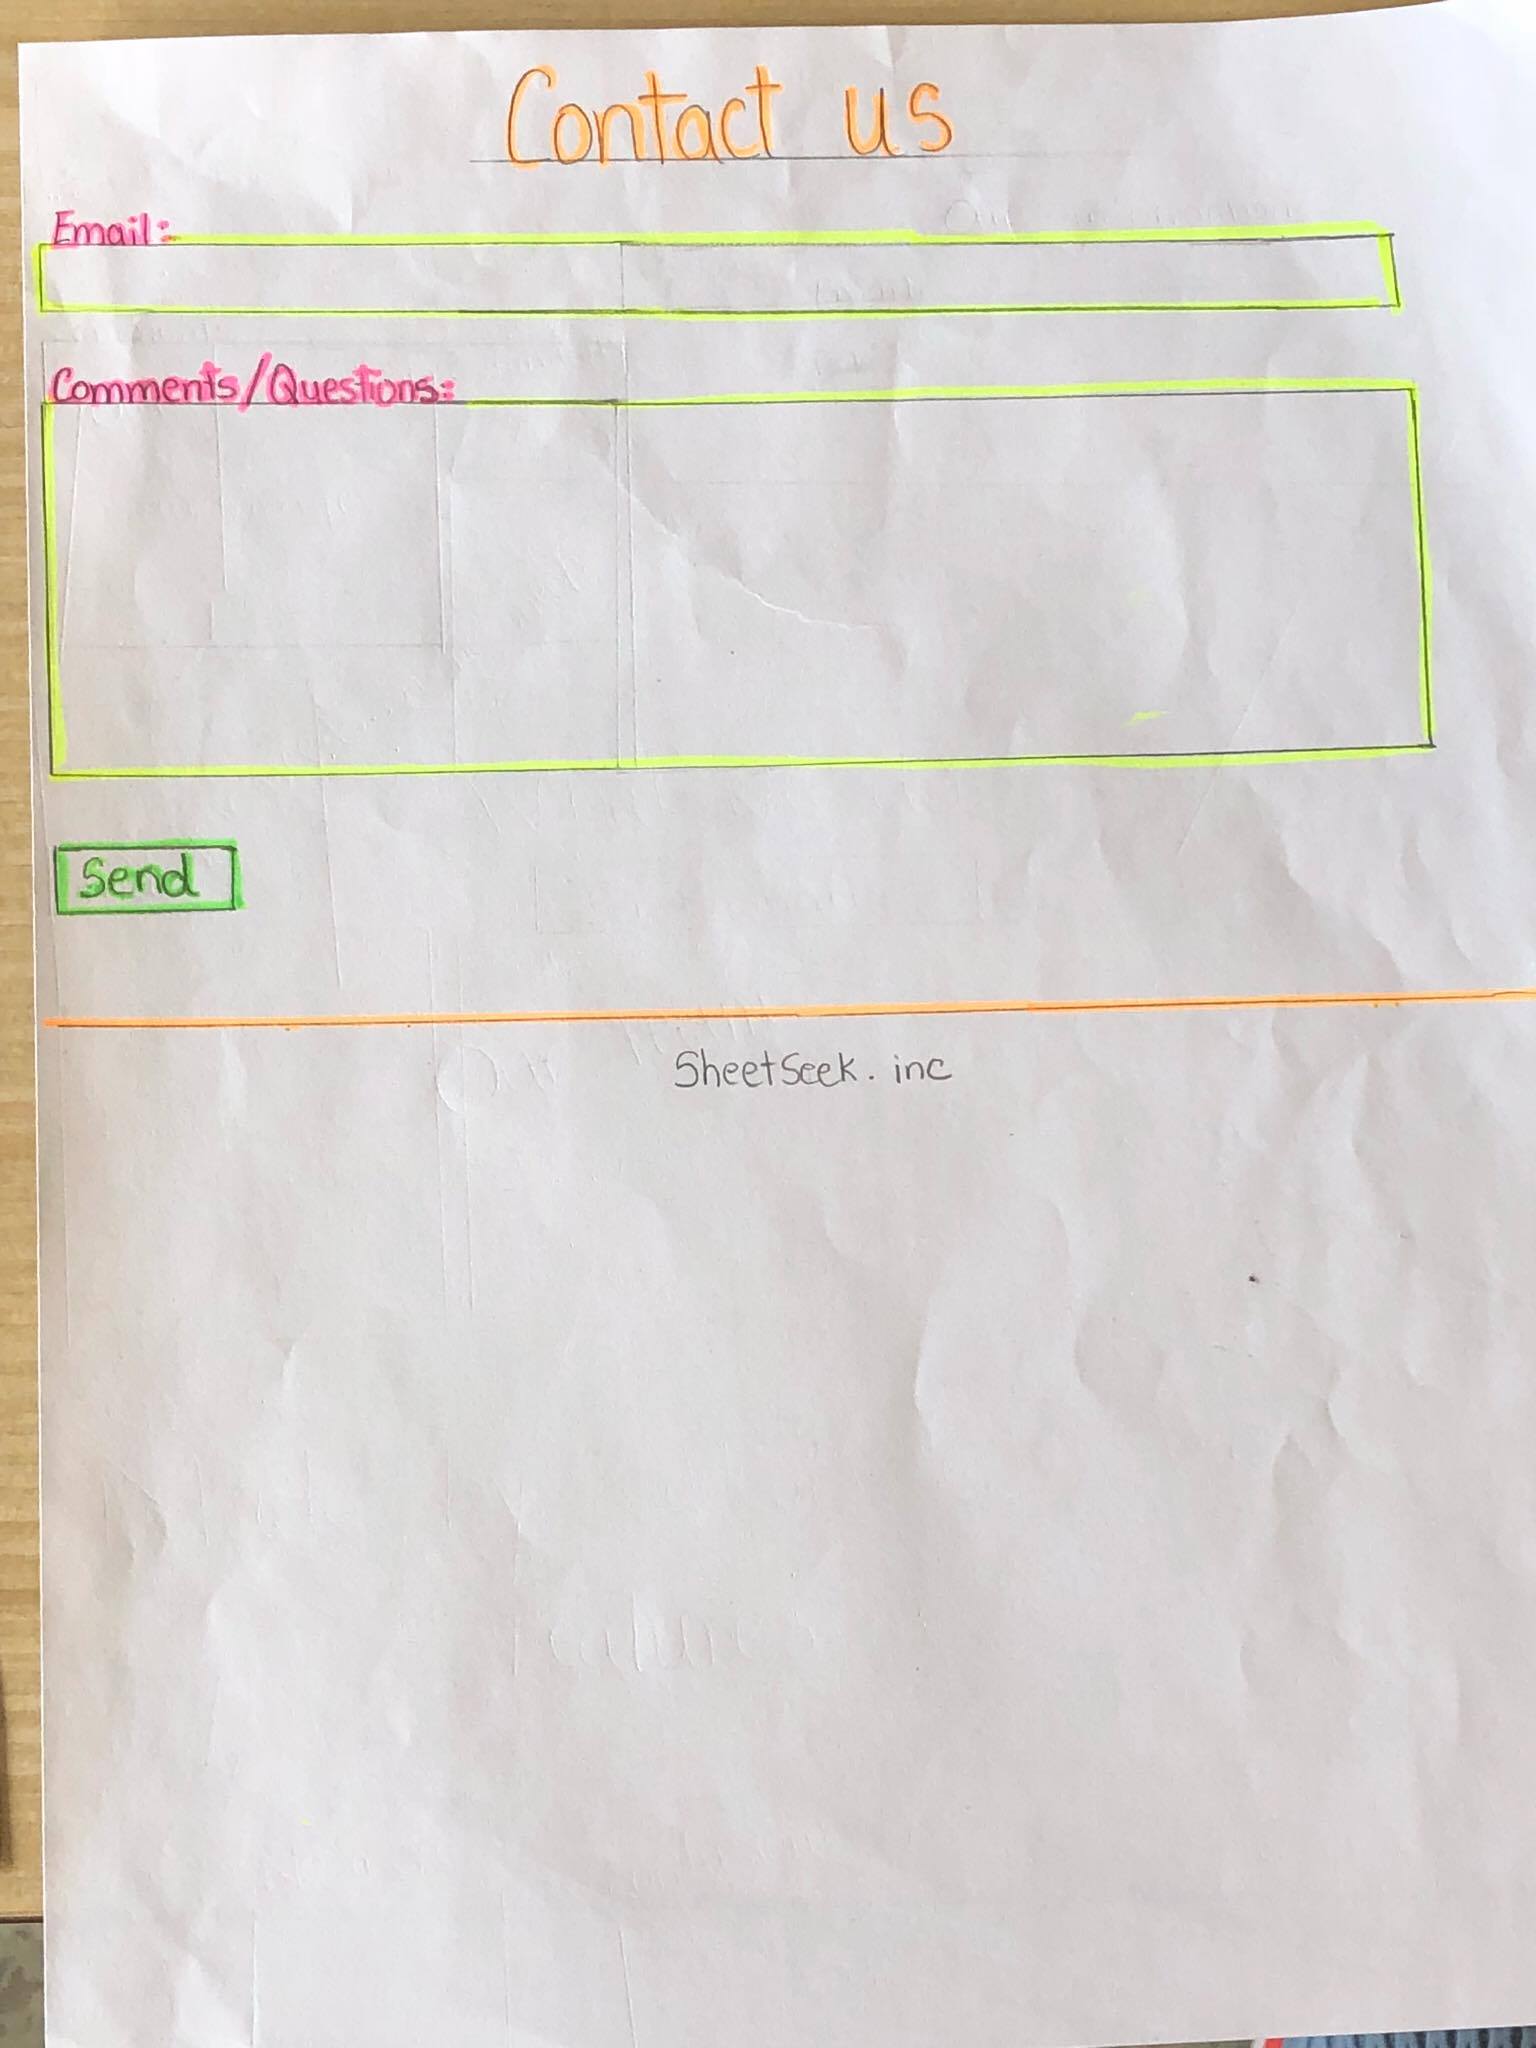 Contact us
Email:
Comments/Questions:
Send
SheetSeek. inc